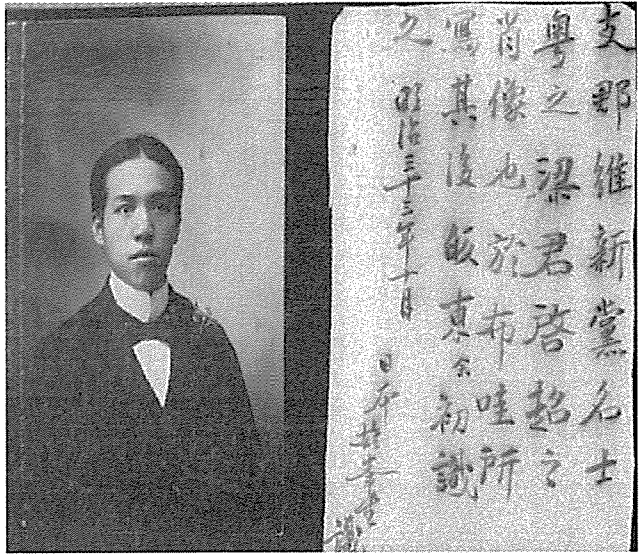 支那維新黨名士
粤之梁君啓超之
肖像也於布哇所
寫其後皈東余初識
之 明治三十三年十月
識